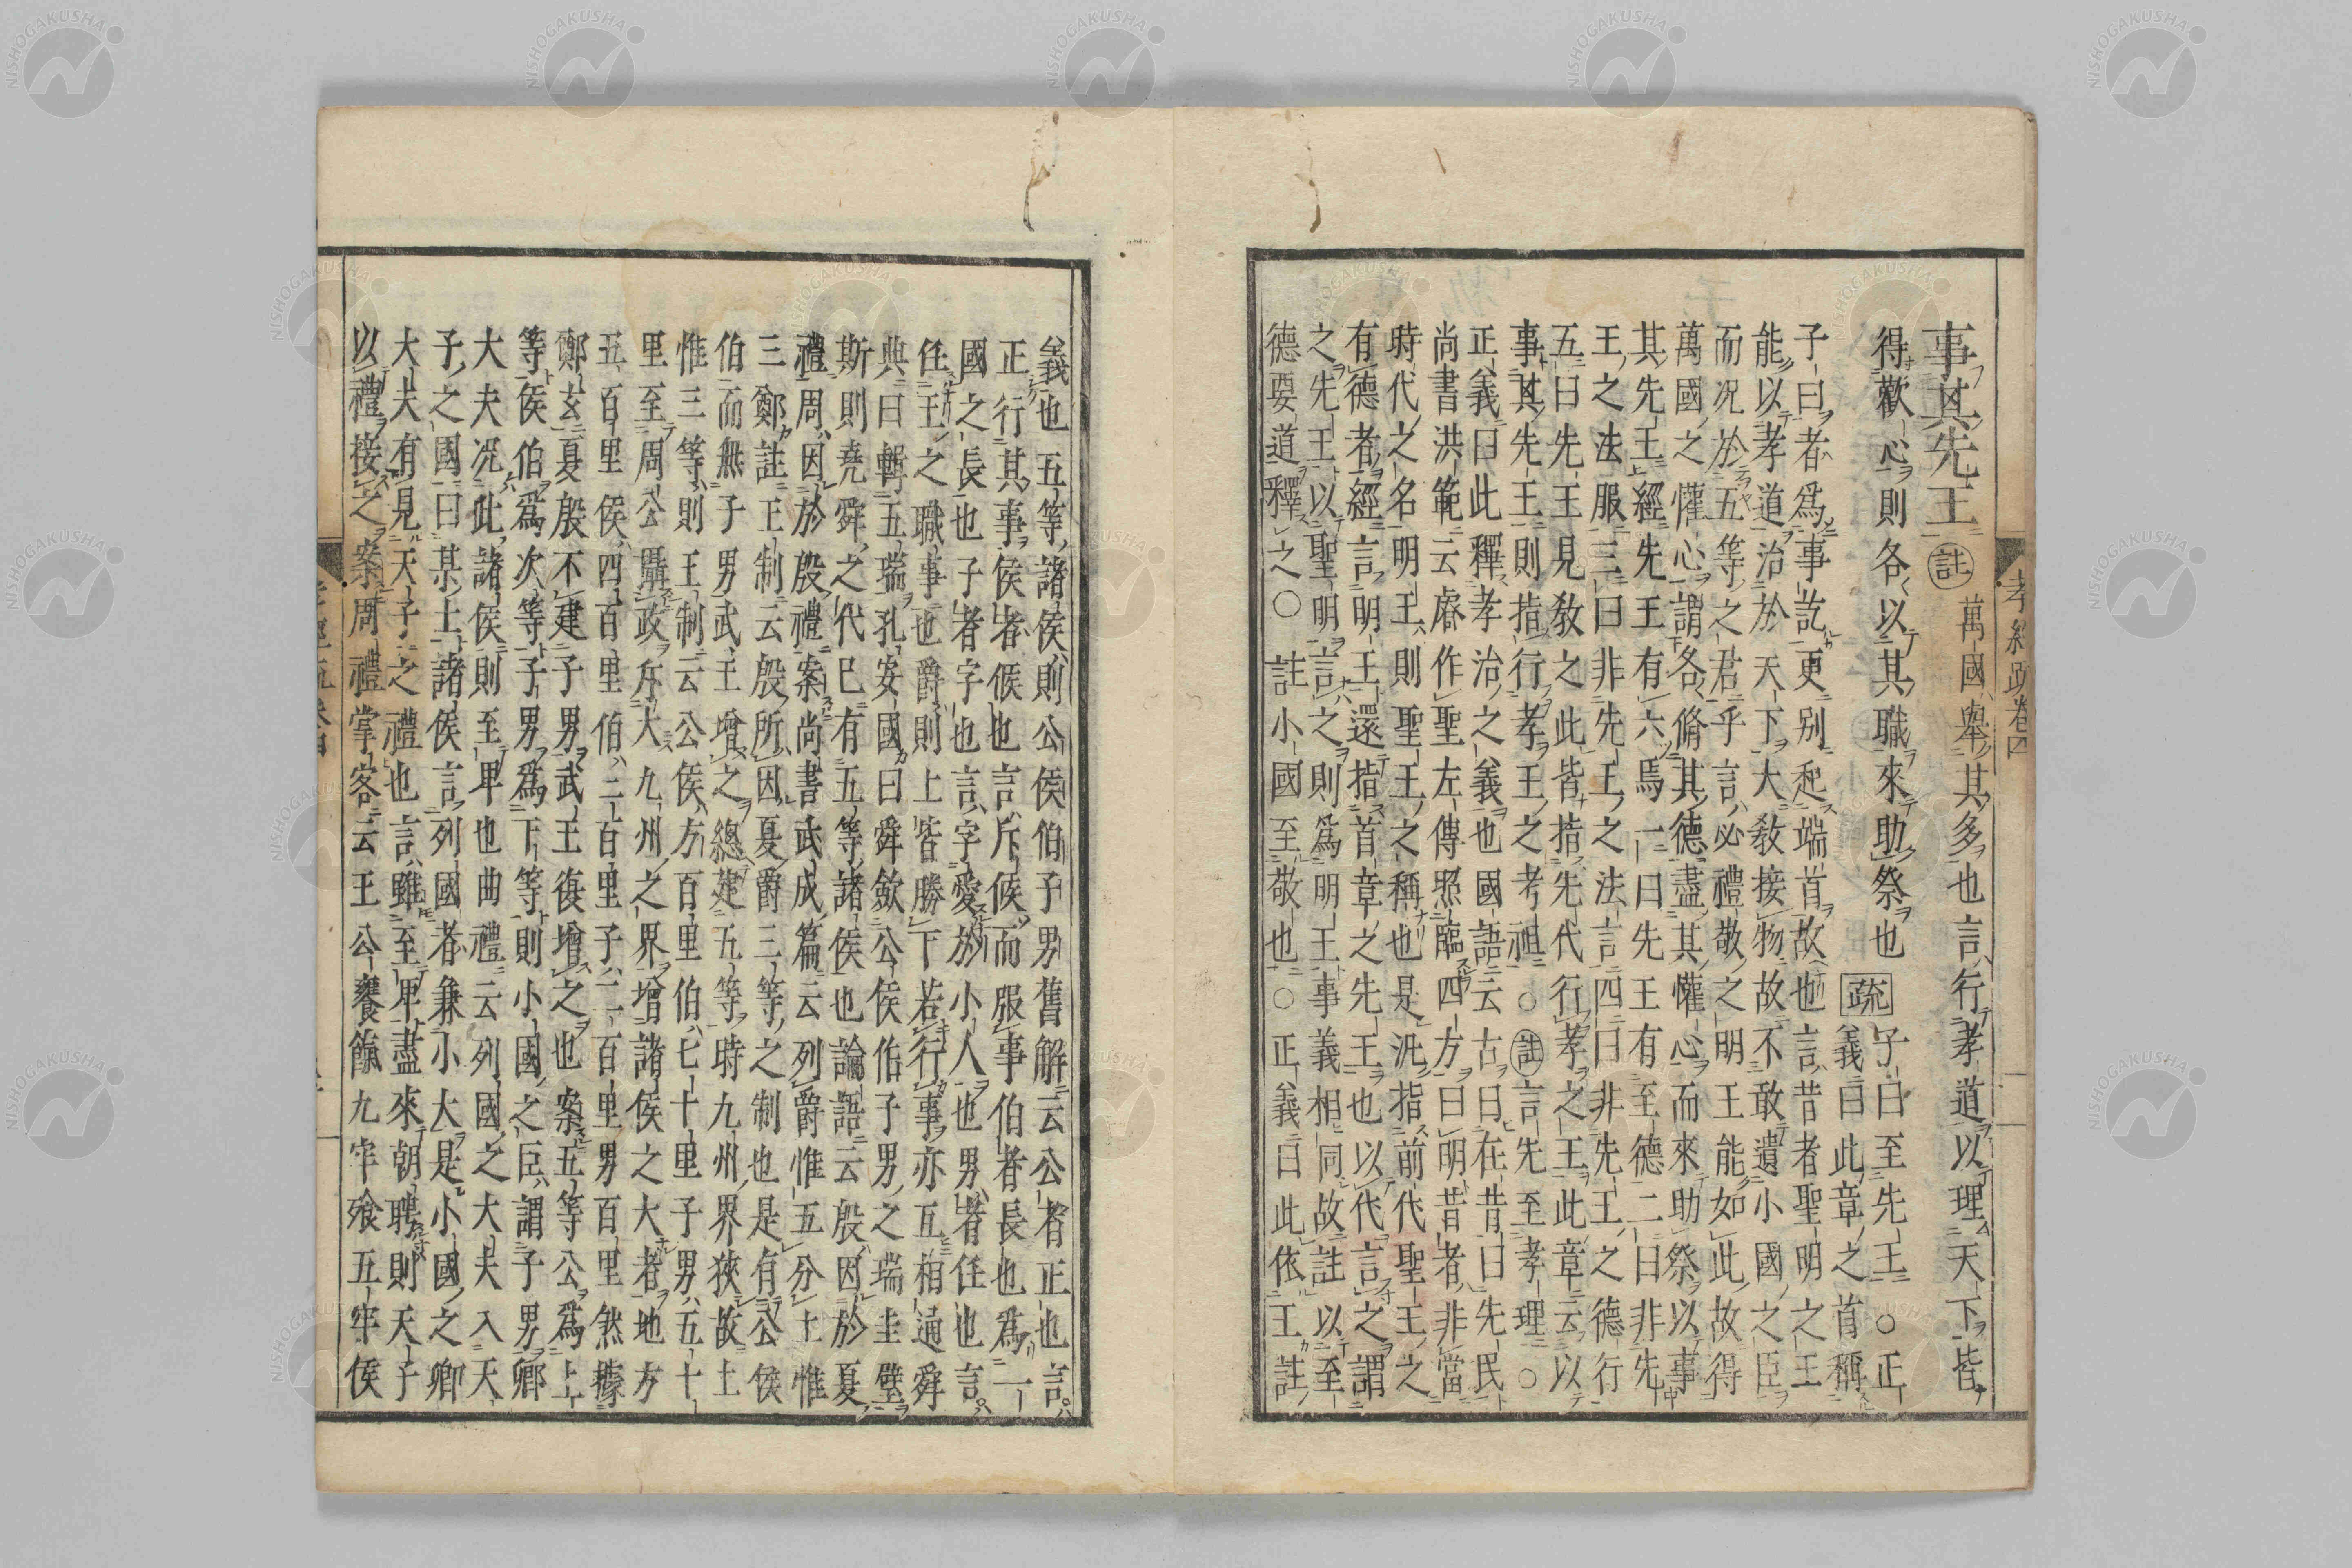 事其先王 註 萬國舉其多也言行孝道以理天下皆
得歡心則各以其職來助祭也 疏 子曰至先王○正
義曰此章之首稱
子曰者爲事訖更別起端首故也言昔者聖明之王
能以孝道治於天下大敎接物故不敢遺小國之臣
而况於五等之君乎言必禮敬之明王能如此故得
萬國之懽心謂各脩其德盡其懽心而來助祭以事
其先王經先王有六焉一曰先王有至德二曰非先
王之法服三曰非先王之法言四曰非先王之德行
五曰先王見敎之此皆指先代行孝之王此章云以
事其先王則指行孝王之考祖○註言先至孝理○
正義曰此釋孝治之義也國語云古曰在昔昔曰先民
尚書洪範云睿作聖左傳照臨四方曰明昔者非當
時代之名明王則聖王之稱也是汎指前代聖王之
有德者經言明王還指首章之先王也以代言之謂
之先王以聖明言之則爲明王事義相同故註以至
德要道釋之○註小國至敬也○正義曰此依王註
孝經疏卷四
義也五等諸侯則公侯伯子男舊解云公者正也言
正行其事侯者候也言斥候而服事伯者長也爲一
國之長也子者字也言字愛於小人也男者任也言
任王之職事也爵則上皆勝下若行事亦互相通舜
典曰輯五瑞孔安國曰舜斂公侯伯子男之瑞圭璧
斯則堯舜之代已有五等諸侯也論語云殷因於夏
禮周因於殷禮案尚書武成篇云列爵惟五分土惟
三鄭註王制云殷所因夏爵三等之制也是有公侯
伯而無子男武王增之總建五等時九州界狹故土
惟三等則王制云公侯方百里伯七十里子男五十
里至周公攝政斥大九州之界增諸侯之大者地方
五百里侯四百里伯三百里子二百里男百里然據
鄭玄夏殷不建子男武王復增之也案五等公爲上
等侯伯爲次等子男爲下等則小國之臣謂子男卿
大夫况此諸侯則至卑也曲禮云列國之大夫入天
子之國曰某士諸侯言列國者兼小大是小國之卿
大夫有見天子之禮也言雖至卑盡來朝聘則天子
以禮接之案周禮掌客云王公饔餼九牢飧五牢侯